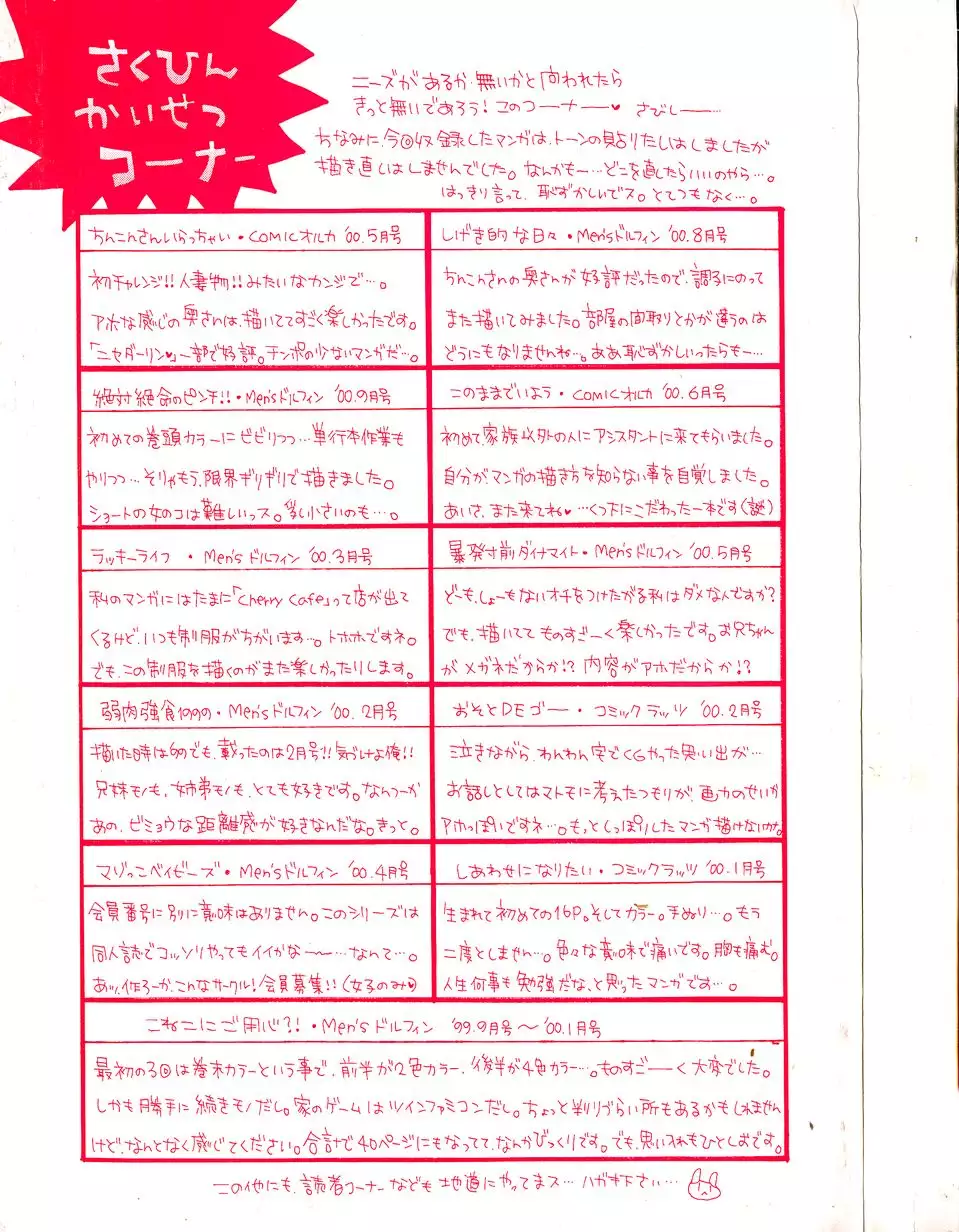 さくひん
かいせつ
コーナー
ニーズがあるか無いかと問われたら
きっと無いであろう!このコーナー♥ さびしー……
ちなみに、今回収録したマンガは、トーンの貼りたしはしましたが
描き直しはしませんでした。なんかも…どこを直したらいいのやら…。
はっきり言って、恥ずかしいでス。とてつもなく…。
ちんこんさんいらっちゃい・COMICオルカ '00.5月号
初チャレンジ!!人妻物!!みたいなカンジで…。
アホな感じの奥さんは、描いててすごく楽しかったです。
「ニセダーリン♥」一部で好評。チンポの少ないマンガだ…。
しげき的な日々・Men'sドルフィン '00.8月号
ちんこんさんの奥さんが好評だったので、調子にのって
また描いてみました。部屋の間取りとかが違うのは
どうにもなりませんね…。ああ恥ずかしいったらもー…
絶対絶命のピンチ!!・Men'sドルフィン '00.9月号
初めての巻頭カラーにビビりつつ…単行本作業も
やりつつ…そりゃもう、限界ギリギリで描きました。
ショートの女のコは難しいっス。乳小さいのも…。
このままでいよう・COMICオルカ '00.6月号
初めて家族以外の人にアシスタントに来てもらいました。
自分がマンガの描き方を知らない事を自覚しました。
あいさ、また来てね♥…くつ下にこだわった一本です(謎)
ラッキーライフ ・Men'sドルフィン '00.3月号
私のマンガにはたまに「Cherry Cafe」って店が出て
くるけど、いつも制服がちがいます…。トホホですネ。
でも、この制服を描くのがまた楽しかったりします。
暴発寸前ダイナマイト・Men'sドルフィン '00.5月号
どーも、しょーもないオチをつけたがる私はダメなんですか?
でも、描いてて ものすごーく楽しかったです。お兄ちゃん
がメガネだからか!?内容がアホだからか!?
弱肉強食1999・Men'sドルフィン '00.2月号
描いた時は99でも、載ったのは2月号!!気づけよ俺!!
兄妹モノも、姉弟モノも、とても好きです。なんつーか
あの、ビミョウな距離感が好きなんだな。きっと。
おそとDEゴー・コミックラッツ '00.2月号
泣きながら、わんわん宅でCGやった思い出が…
お話しとしてはマトモに考えたつもりが、画力のせいか
アホっぽいですネ…。もっとしっぽりしたマンガ描けないかな。
マゾっこベイビーズ・Men'sドルフィン '00.4月号
会員番号に別に意味はありません。このシリーズは
同人誌でコッソリやってもイイかな〜…なんて…。
あッ、作ろーか、こんなサークル!会員募集!!(女子のみ♥)
しあわせになりたい・コミックラッツ '00.1月号
生まれて初めての16P。そしてカラー。手ぬり…。もう
二度としません…。色々な意味で痛いです。胸も痛む。
人生何事も勉強だな、と思ったマンガです…。
こねこにご用心?!・Men'sドルフィン '99.9月号〜'00.1月号
最初の3回は巻末カラーという事で、前半が2色カラー、後半が4色カラー…。ものすごーく大変でした。
しかも勝手に続きモノだし。家のゲームはツインファミコンだし。ちょっと判りづらい所もあるかもしれません
けど、なんとなく感じてください。合計で40ページにもなってて、なんかびっくりです。でも、思い入れもひとしおです。
この他にも、読者コーナーなども地道にやってまス…ハガキ下さい…